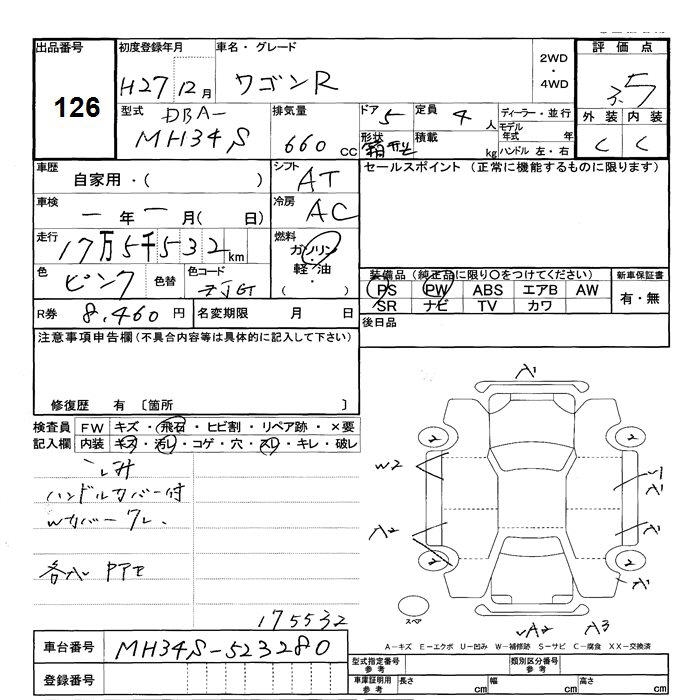 出品番号
126
初度登録年月 車名・グレード
H27 12月 ワゴンR
2WD
・
4WD
評価点
3.5
外装 内装
C C
型式 DBA-
MH34S
排気量
660 CC
ドア 5 定員 4 人
形状 箱型 積載 kg
ディーラー・並行
モデル年式 年
ハンドル 左・右
車歴
自家用・( )
シフト
AT
セールスポイント (正常に機能するものに限ります)
車検
ー 年 ー 月( 日)
冷房
AC
走行
17万5千532km
燃料
ガソリン
・
軽油
( )
色
ピンク 色替 色コード
装備品(純正品に限り〇をつけてください) 新車保証書
PS PW ABS エアB AW
SR ナビ TV カワ
有・無
R券 8,460 円 名変期限 月 日
後日品
注意事項申告欄(不具合内容等は具体的に記入して下さい)
修復歴 有 〔箇所 〕
検査員 FW キズ・飛石・ヒビ割・リペア跡・×要
記入欄 内装 キズ・汚レ・コゲ・穴・スレ・キレ・破レ
シミ
ハンドルカバー付
Wカバー
175532
A1
2 2
W2 U1
A1
A2
2 2
A1
スペア
A2 A3
A－キズ E－エクボ U－凹み W－補修跡 S－サビ C－腐食 XX－交換済
車台番号 MH34S-523280
登録番号
型式指定番号
参考
類別区分番号
参考
車庫証明用
参考
長さ cm 幅 cm 高さ cm